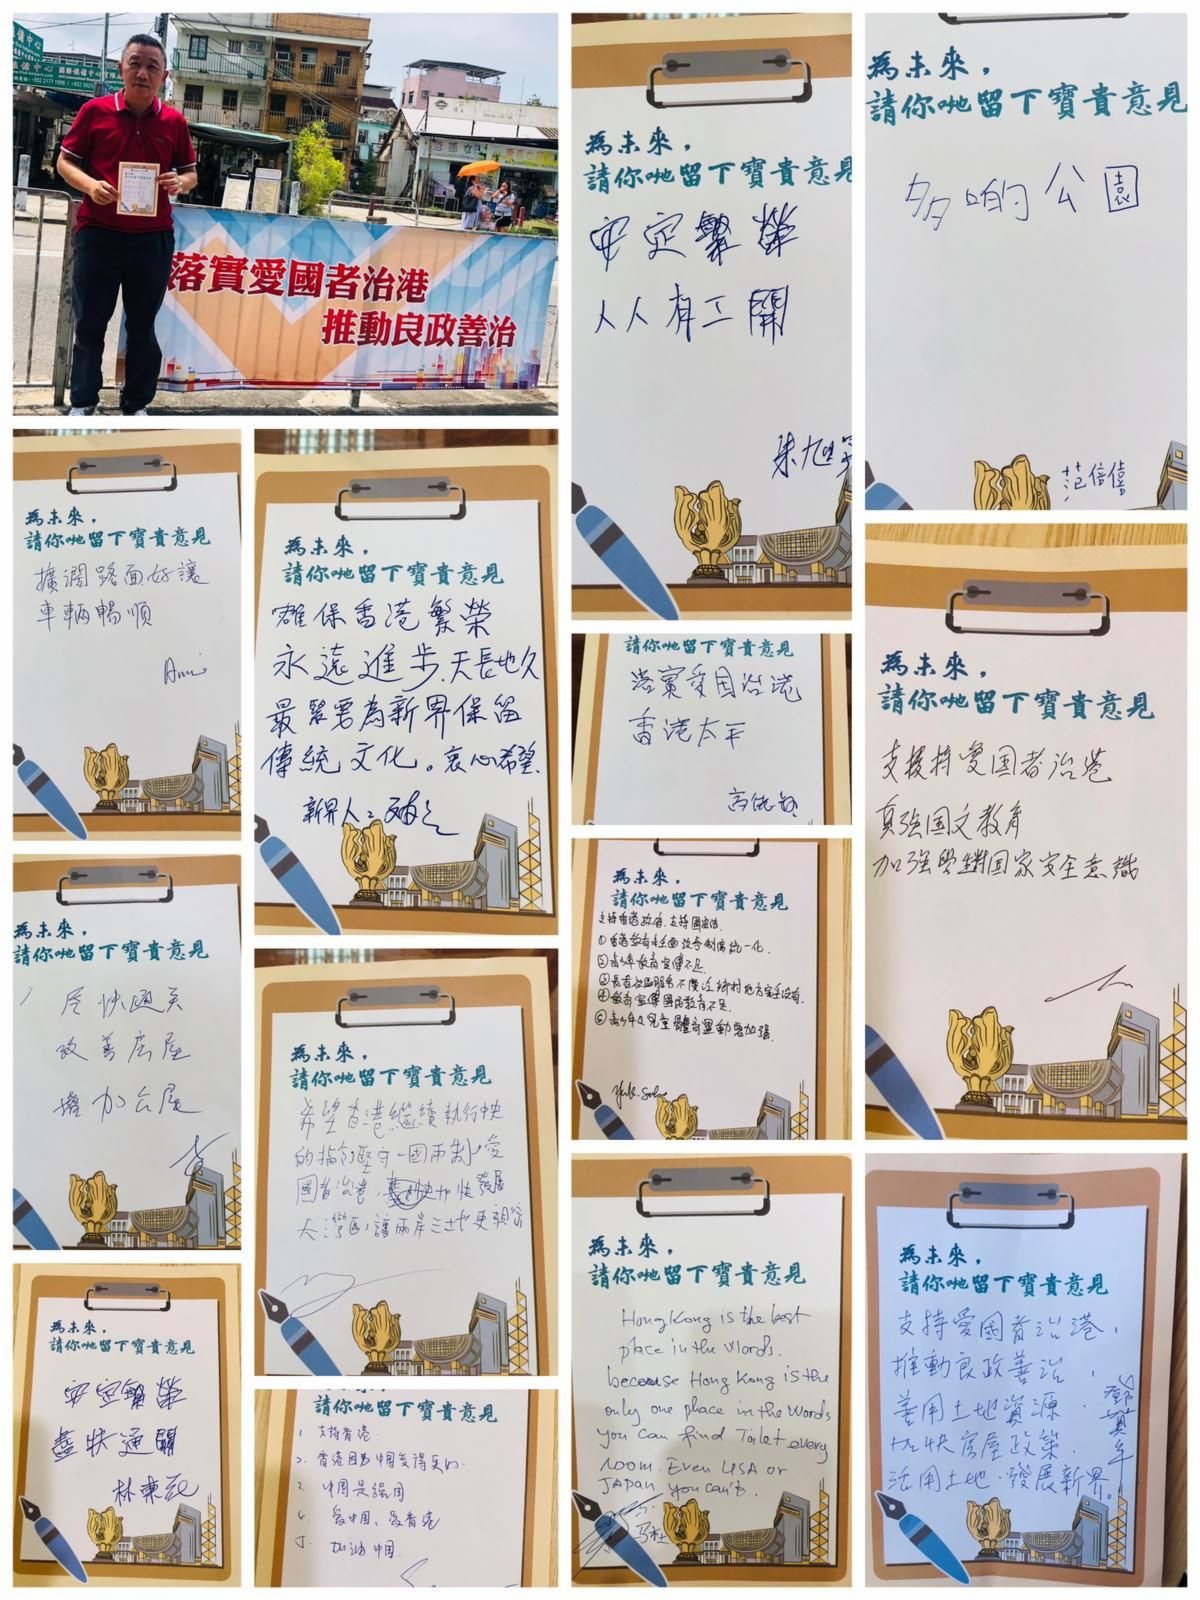 落實愛國者治港
推動良政善治
為未來，
請你哋留下寶貴意見
安定繁榮
人人有工開
為未來，
請你哋留下寶貴意見
多啲公園
范倍僖
為未來，
請你哋留下寶貴意見
擴濶路面好讓
車輛暢順
Ami
為未來，
請你哋留下寶貴意見
確保香港繁榮
永遠進步.天長地久
最緊要為新界保留
傳統文化。衷心希望.
新界人：
請你哋留下寶貴意見
落實爱国治港
香港太平
為未來，
請你哋留下寶貴意見
支援持爱国者治港
真強国文教育
加強學對国家安全意識
為未來，
請你哋留下寶貴意見
尽快通关
改善房屋
增加公屋
為未來，
請你哋留下寶貴意見
支持香港政府.支持國安法.
②青少年教育宣傳不足.
④教育宣傳國民教育不足.
⑤青少年及兒童體育運動要加強.
為未來，
請你哋留下寶貴意見
希望香港繼續執行中央
的指令堅守一國兩制，愛
國者治港，加快發展
大灣區，讓兩岸三地更
為未來，
請你哋留下寶貴意見
安定繁榮
盡快通關
林東
請你哋留下寶貴意見
1. 支持香港.
2. 香港因為中國变得更好.
3. 中国是強国
4. 爱中国、爱香港
5. 加油中国.
為未來，
請你哋留下寶貴意見
Hong Kong is the best
place in the words.
because Hong Kong is the
only one place in the words
you can find Toilet every
room. Even USA or
JAPAN you can't.
為未來，
請你哋留下寶貴意見
支持愛國者治港，
推動良政善治，
善用土地資源，
加快房屋政策.
活用土地，發展新界。